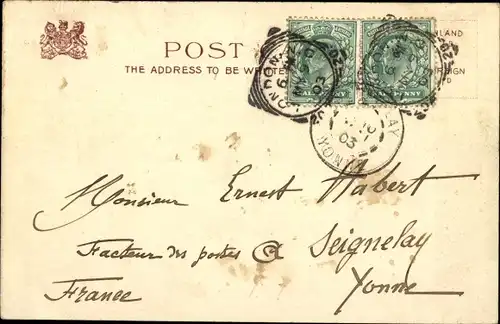 POST
THE ADDRESS TO BE WRITTEN
INLAND
HALFPENNY
HALFPENNY
LONDON
03
YONNE
03
Monsieur Ernest Habert
Facteur des postes à Seignelay
France Yonne